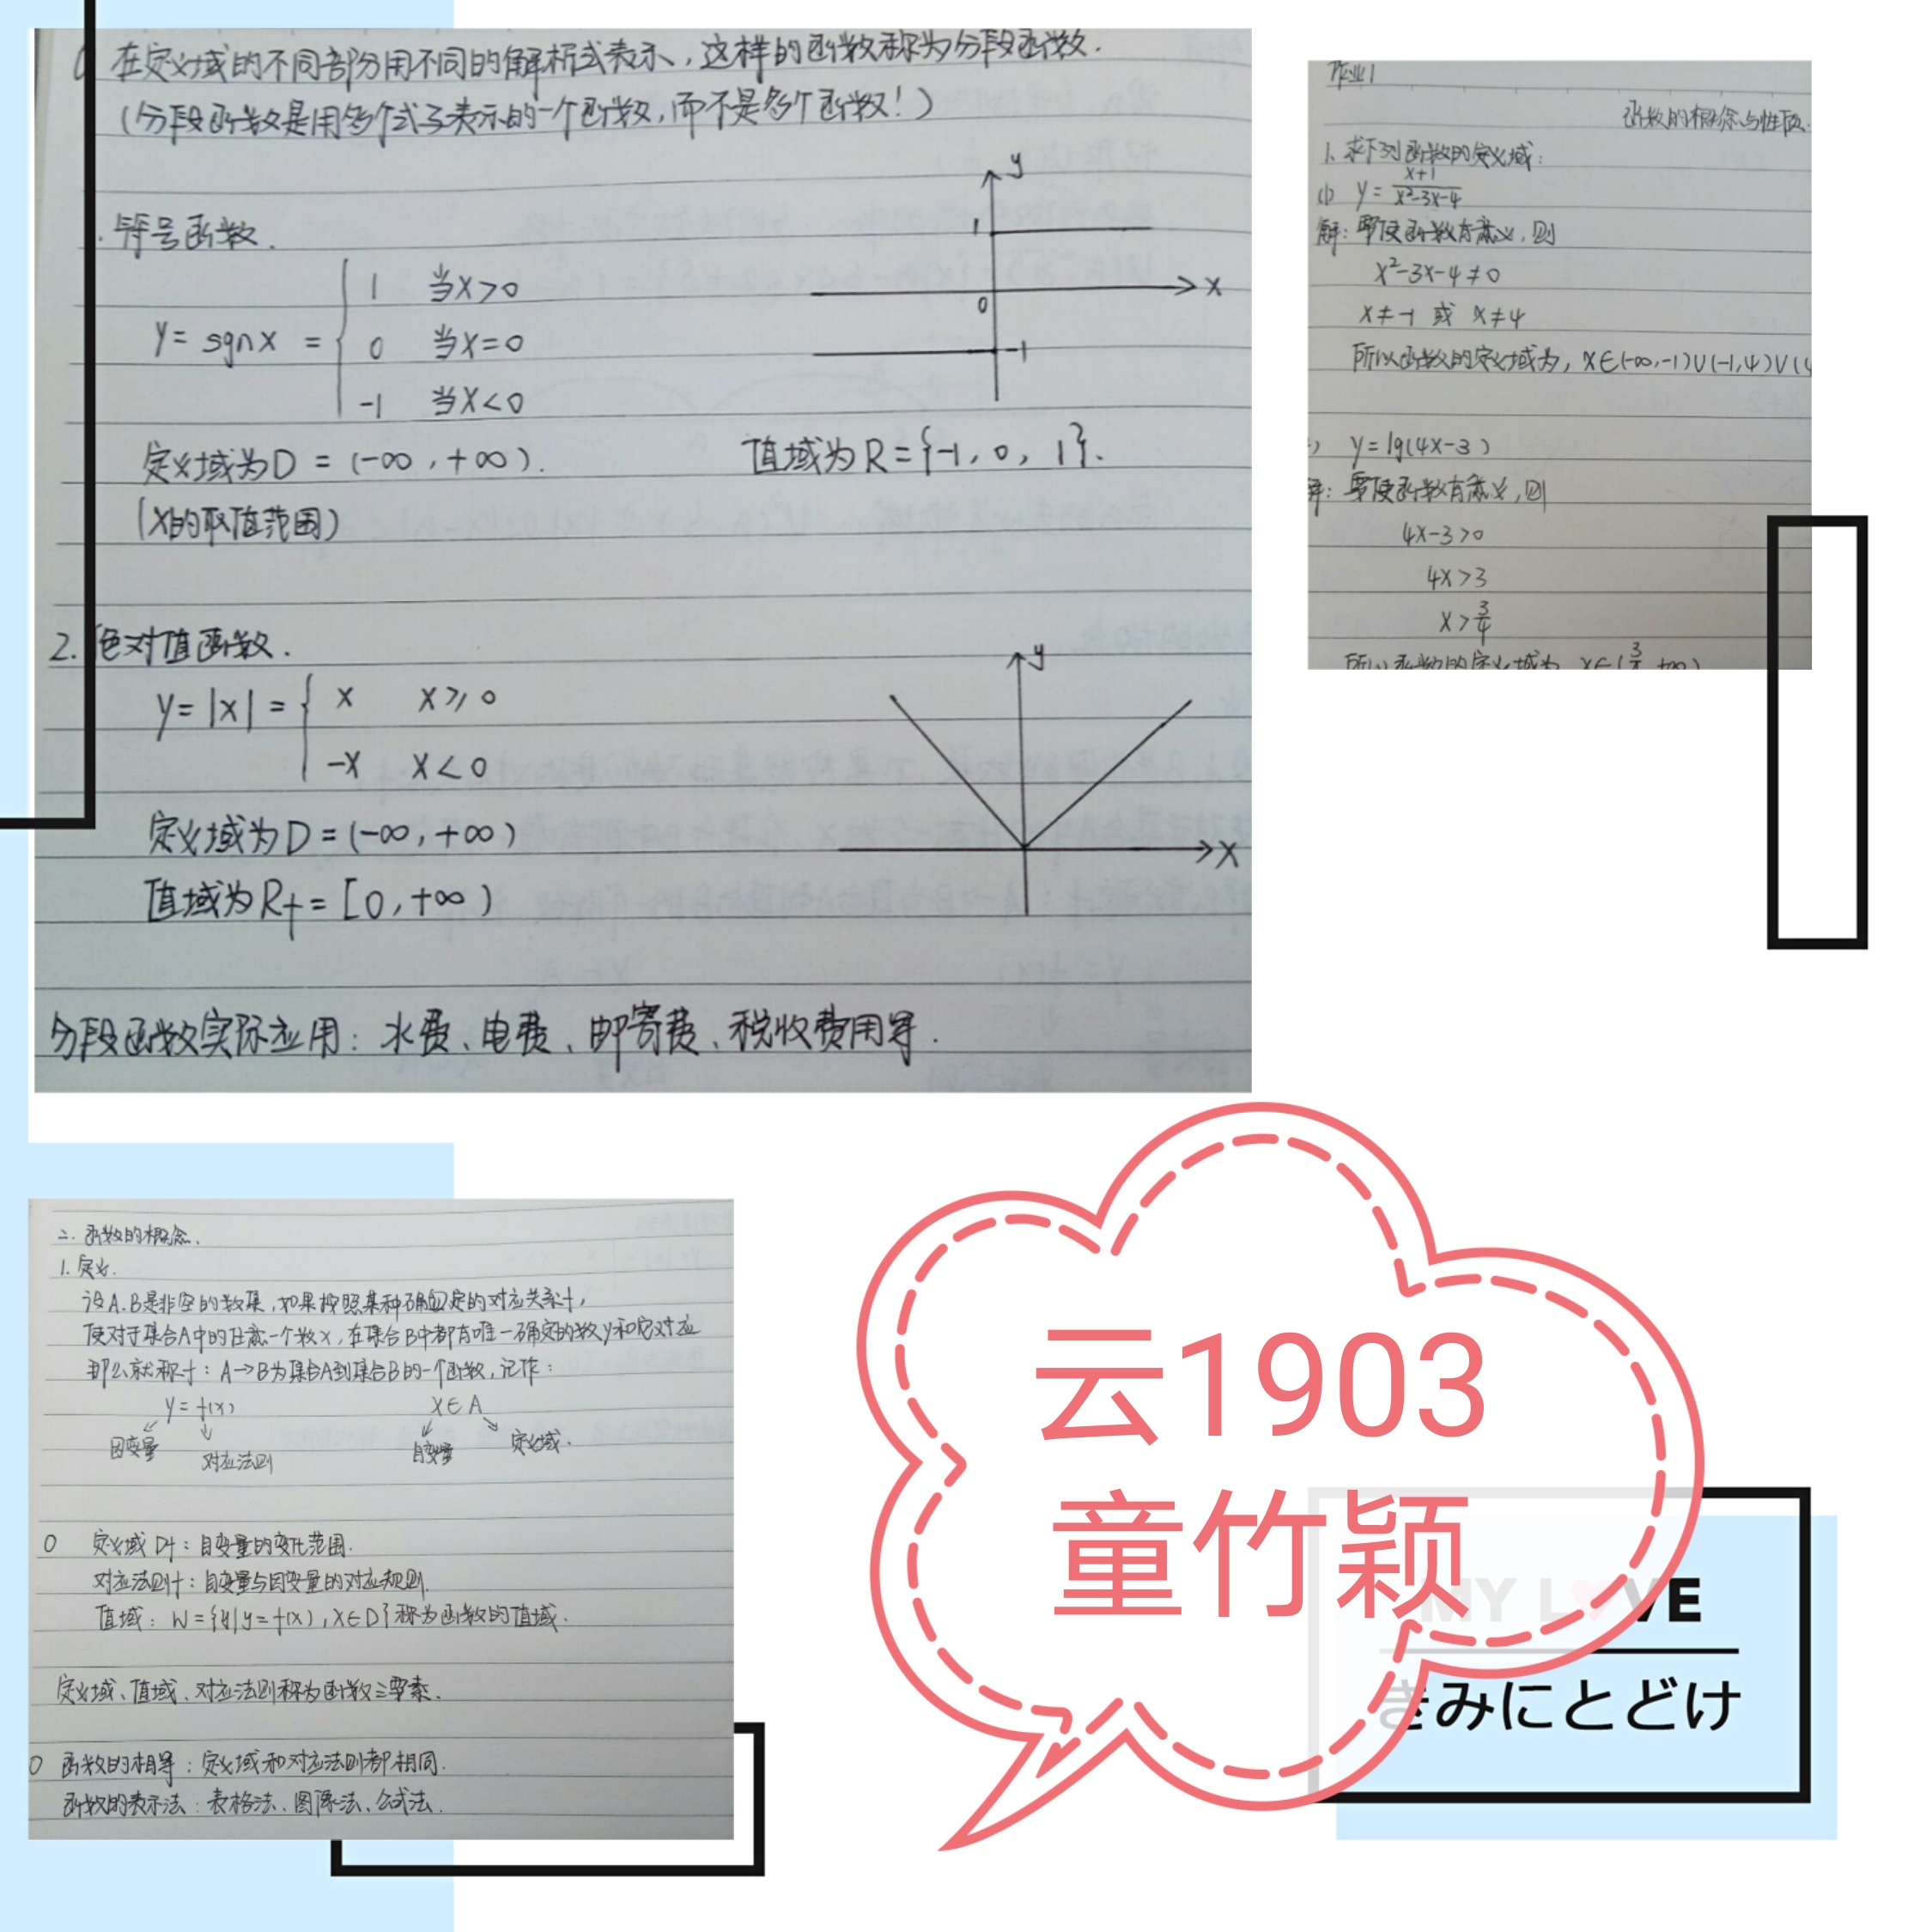 在定义域的不同部分用不同的解析式表示,这样的函数称为分段函数.
(分段函数是用多个式子表示的一个函数,而不是多个函数!)
符号函数.
y
1
x
0
-1
y= sgnx = { 1 当x>0
0 当x=0
-1 当x<0
定义域为D = (-∞, +∞).
值域为R={-1, 0, 1}.
(x的取值范围)
2. 绝对值函数.
y
x
y=|x|= { x x≥0
-x x<0
定义域为D=(-∞, +∞)
值域为R+= [0, +∞)
分段函数实际应用: 水费、电费、邮寄费、税收费用等.
作业1
函数的概念与性质.
1. 求下列函数的定义域:
(1) y= x+1/x²-3x-4
解: 要使函数有意义, 则
x²-3x-4≠0
x≠-1 或 x≠4
所以函数的定义域为, x∈(-∞,-1)∪(-1,4)∪(4
) y=lg(4x-3)
解: 要使函数有意义, 则
4x-3>0
4x>3
x>3/4
所以函数的定义域为 x∈(3/4 +∞)
二. 函数的概念.
1. 定义.
设A.B是非空的数集, 如果按照某种确定的对应关系f,
使对于集合A中的任意一个数x, 在集合B中都有唯一确定的数y和它对应
那么就称f: A→B为集合A到集合B的一个函数, 记作:
y= f(x) x∈A
因变量 对应法则 自变量 定义域.
定义域 Df: 自变量的变化范围.
对应法则f: 自变量与因变量的对应规则.
值域: W={y|y=f(x), x∈D}称为函数的值域.
定义域、值域、对应法则称为函数三要素.
函数的相等: 定义域和对应法则都相同.
函数的表示法: 表格法、图像法、公式法.
云1903
童竹颖
MY LOVE
きみにとどけ